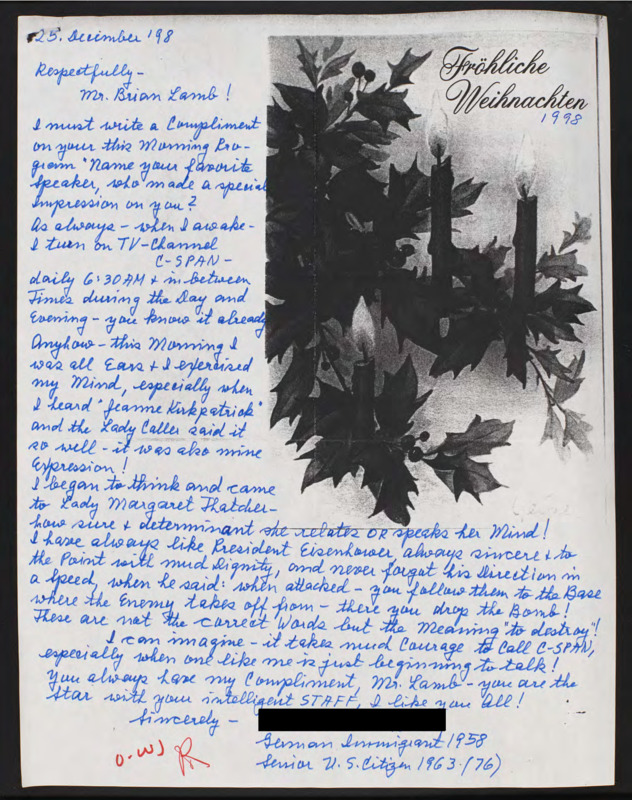 25. December '98
Fröhliche
Weihnachten
1998
Respectfully -
Mr. Brian Lamb!
I must write a Compliment
on your this Morning Pro-
gram "Name your favorite
Speaker, who made a special
Impression on you?
As always - when I awake -
I turn on TV-Channel
C-SPAN -
daily 6:30 AM + in-between
Times during the Day and
Evening - you know it already
Anyhow - this Morning I
was all Ears + I exercised
my Mind, especially when
I heard "Jeanne Kirkpatrick"
and the Lady Caller said it
so well - it was also mine
Expression!
I began to think and came
to Lady Margaret Thatcher -
how sure + determinant she relates or speaks her Mind!
I have always like President Eisenhower, always sincere + to
the Point with much Dignity, and never forgot his Direction in
a Speed, when he said: when attacked - you follow them to the Base
where the Enemy takes off from - there you drop the Bomb!
These are not the correct Words but the Meaning "to destroy"!
I can imagine - it takes much Courage to Call C-SPAN,
especially when one like me is just beginning to talk!
You always have my Compliment, Mr. Lamb - you are the
Star with your intelligent STAFF, I like you all!
Sincerely -
German Immigrant 1958
Senior U.S. Citizen 1963 (76)